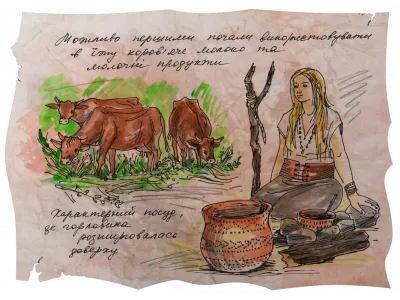 Можливо першими почали використовувати
в їжу коров'яче молоко та
молочні продукти
Характерний посуд,
де горловина
розширювалась
доверху